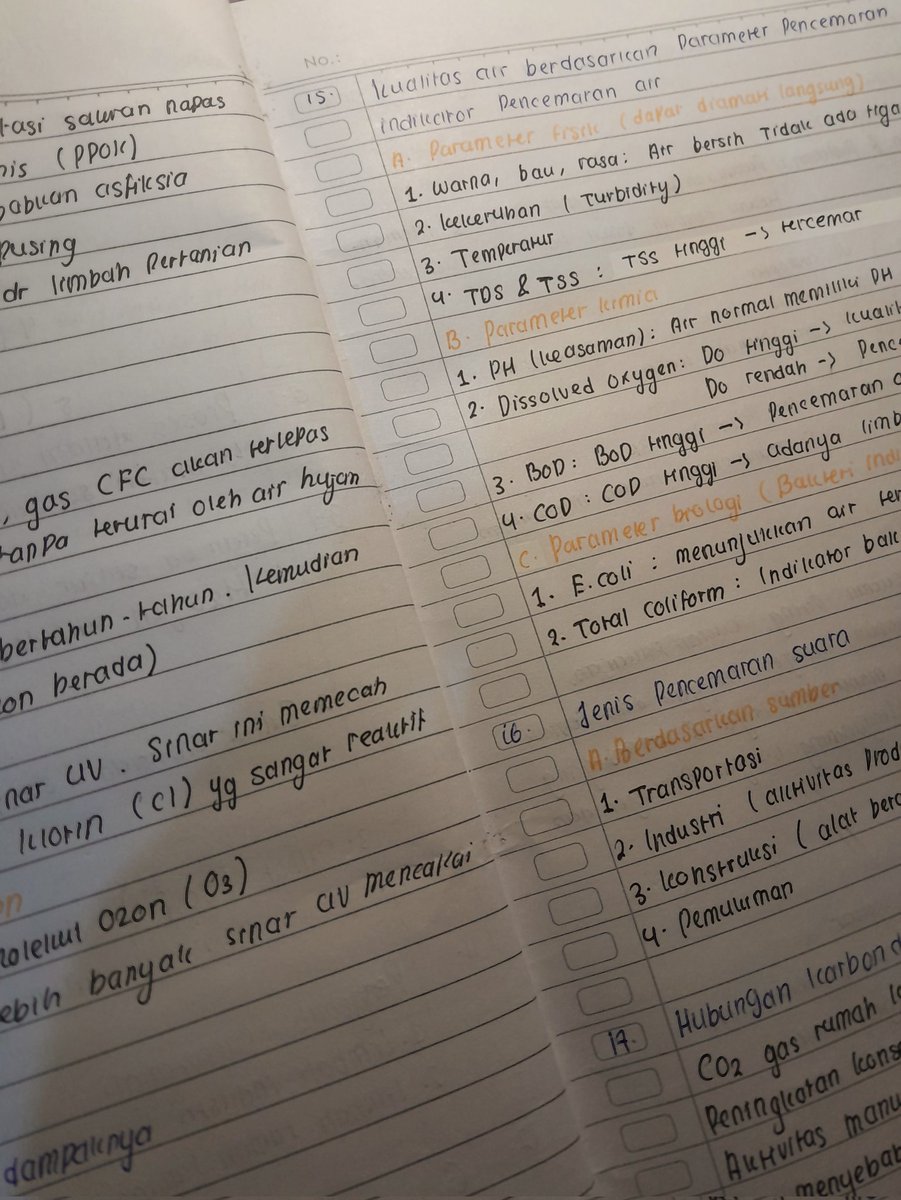 saluran napas
(PPOK)
asfiksia
pusing
dr limbah pertanian
, gas CFC akan terlepas
terurai oleh air hujan
bertahun-tahun. Kemudian
on berada)
UV. Sinar ini memecah
klorin (Cl) yg sangat reaktif
Ozon (O3)
banyak sinar UV mencapai
dampaknya
No.:
15. Kualitas air berdasarkan Parameter Pencemaran
indikator Pencemaran air
A. Parameter fisik (dapat diamati langsung)
1. Warna, bau, rasa: Air bersih Tidak ada
2. kekeruhan (Turbidity)
3. Temperatur
4. TDS & TSS : TSS tinggi -> tercemar
B. Parameter kimia
1. PH (keasaman): Air normal memiliki PH
2. Dissolved oxygen: Do tinggi ->
Do rendah ->
3. BOD: BOD tinggi -> Pencemaran
4. COD : COD tinggi -> adanya
C. Parameter biologi (Bakteri
1. E.coli : menunjukkan air
2. Total coliform : Indikator
16. Jenis pencemaran suara
A. Berdasarkan sumber
1. Transportasi
2. Industri (aktivitas
3. konstruksi (alat
4. Pemukiman
17. Hubungan
CO2 gas rumah
Peningkatan
Aktivitas